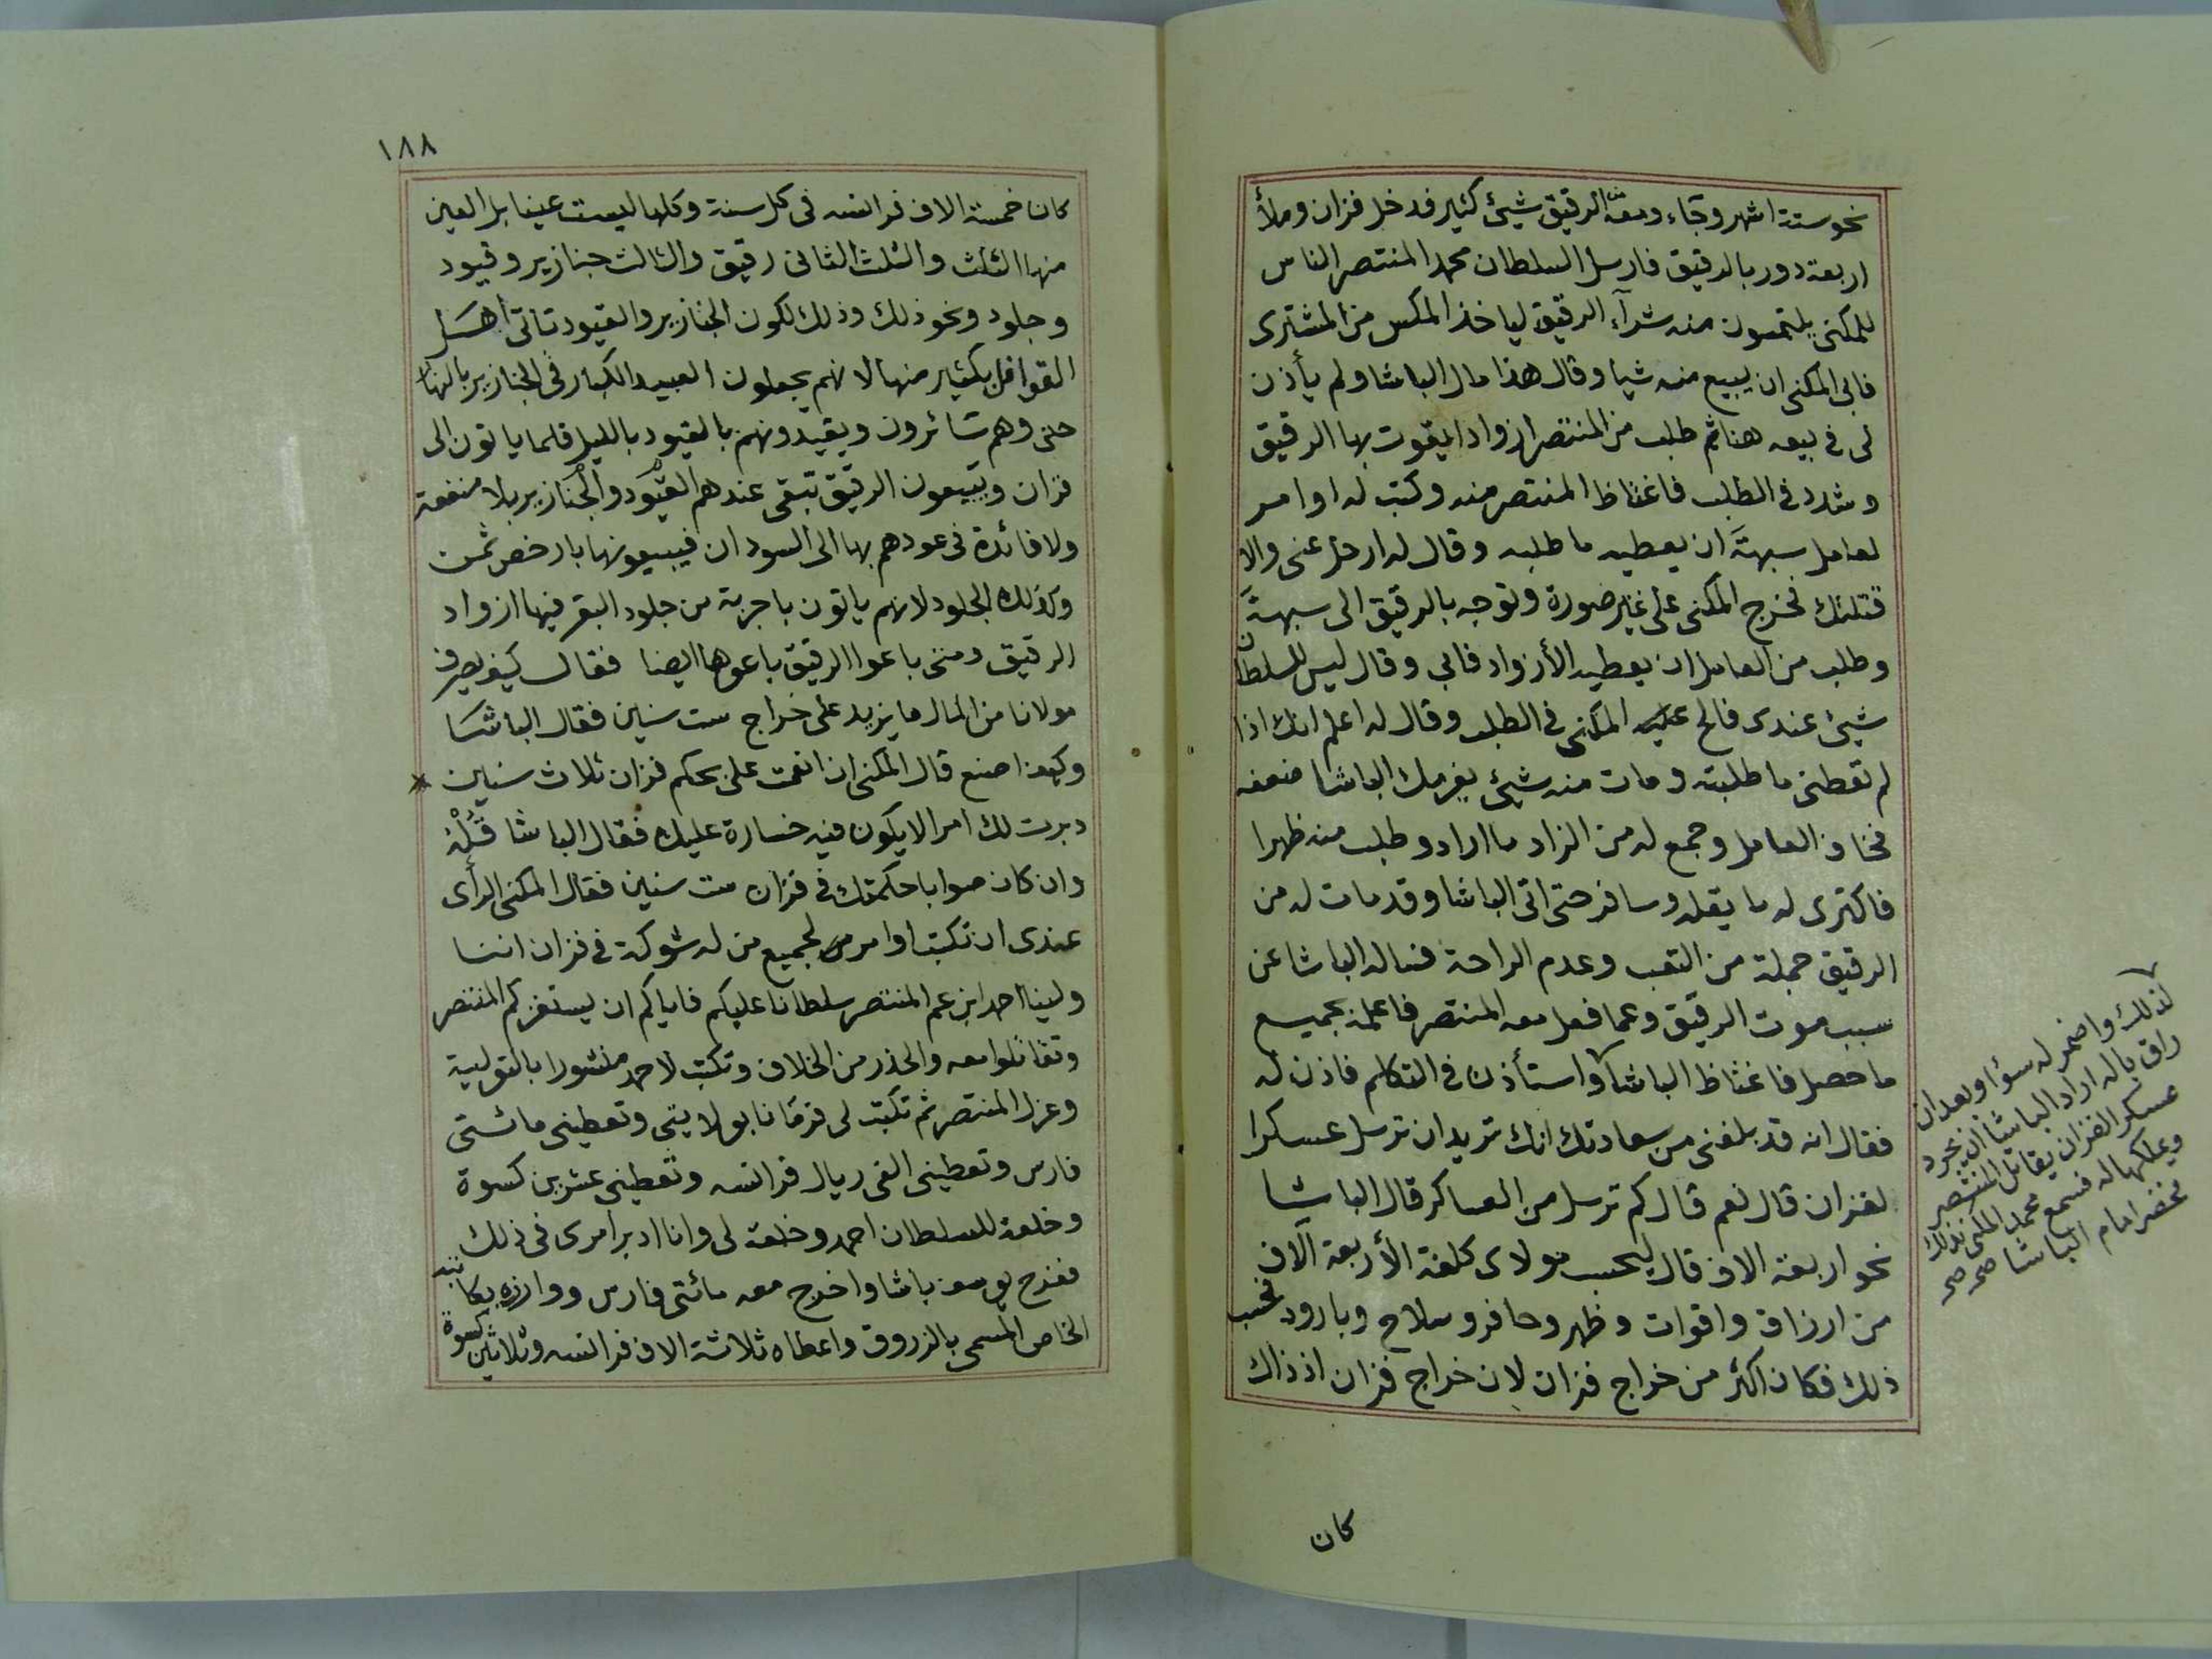 نحو ستة اشهر وجاء ومعه من الرقيق شيئ كثير فدخل فزان وملأ
اربعة دور بالرقيق فارسل السلطان محمد المنتصر الناس
للمكنى يلتمسون منه شرآء الرقيق لياخذ المكس من المشترى
فابى المكنى ان يبيع منه شيا وقال هذا مال الباشا ولم يأذن
لى فى بيعه هنا ثم طلب من المنتصر ازوادا يقوت بها الرقيق
وشدد فى الطلب فاغتاظ المنتصر منه وكتب له اوامر
لعامل سبهة ان يعطيه ما طلبه وقال له ارحل عنى والا
قتلتك فخرج المكنى على غير صورة وتوجه بالرقيق الى سبهة
وطلب من العامل ان يعطيه الأزواد فابى وقال ليس للسلطان
شيئ عندى فالح عليه المكنى فى الطلب وقال له اعلم انك اذا
لم تعطنى ما طلبته ومات منه شيئ يغرمك الباشا ضعفه
فخاف العامل وجمع له من الزاد ما اراد وطلب منه ظهرا
فاكترى له ما يقله وسافر حتى اتى الباشا وقد مات له من
الرقيق جملة من التعب وعدم الراحة فساله الباشا عن
سبب موت الرقيق وعما فعل معه المنتصر فاعلمه بجميع
ما حصل فاغتاظ الباشا واستأذن فى التكلم فاذن له
فقال انه قد بلغنى من سعادتك انك تريد ان ترسل عسكرا
لفزان قال نعم قال كم ترسل من العساكر قال الباشا
نحو اربعة الاف قال ليحسب مولاى كلفة الأربعة آلاف
من ارزاق واقوات وظهر وحافر وسلاح وبارود فحسب
ذلك فكان اكثر من خراج فزان لان خراج فزان اذ ذاك
لذلك واضمر له سؤا وبعد ان
راق باله اراد الباشا ان يجرد
عسكر الفزان يقاتل المنتصر
ويملكها له فسمع محمد المكنى بذلك
فحضر امام الباشا صح صح
كان
١٨٨
كان خمسة الاف فرانسه فى كل سنة وكلها ليست عينا بل العين
منها الثلث والثلث الثانى رقيق والثالث جنازير وقيود
وجلود ونحو ذلك وذلك لكون الجنازير والقيود تاتى اهل
القوافل بكثير منها لانهم يجعلون العبيد الكبار فى الجنازير بالنهار
حتى وهم سائرون ويقيدونهم بالقيود بالليل فلما ياتون الى
فزان ويبيعون الرقيق تبقى عندهم القيود والجنازير بلا منفعة
ولا فائدة فى عودهم بها الى السودان فيبيعونها بارخص ثمن
وكذلك الجلود لانهم ياتون باجربة من جلود البقر فيها ازواد
الرقيق ومتى باعوا الرقيق باعوها ايضا فقال كيف يصرف
مولانا من المال ما يزيد على خراج ست سنين فقال الباشا
وكيف اصنع قال المكنى ان انعمت على بحكم فزان ثلاث سنين
دبرت لك امرا لا يكون فيه خسارة عليك فقال الباشا قله
وان كان صوابا حكمتك فى فزان ست سنين فقال المكنى الرأى
عندى ان تكتب اوامر لجميع من له شوكة فى فزان اننا
ولينا احمد ابن عم المنتصر سلطانا عليكم فاياكم ان يستفزكم المنتصر
وتقاتلوا معه والحذر من الخلاف وتكتب لاحمد منشورا بالتولية
وعزل المنتصر ثم تكتب لى فرمانا بولايتى وتعطينى مائتى
فارس وتعطينى الفى ريال فرانسه وتعطينى عشرين كسوة
وخلعة للسلطان احمد وخلعة لى وانا ادبر امرى فى ذلك
ففرح يوسف باشا واخرج معه مائتى فارس ووازره بكاتبه
الخاص المسمى بالزروق واعطاه ثلاثة الاف فرانسه وثلاثين كسوة